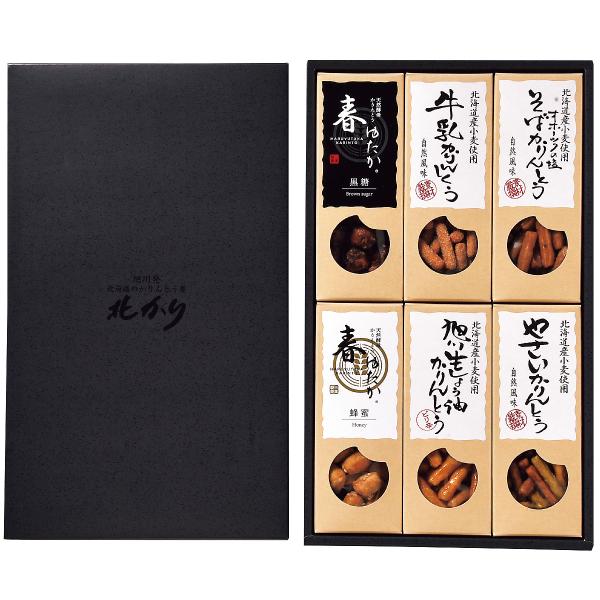 旭川発
北海道のかりんとう屋
北かり
天然酵母
かりんとう
春ゆたか。
HARUYUTAKA
KARINTO
黒糖
Brown sugar
北海道産小麦使用
牛乳かりんとう
自然風味
北海道産小麦使用
オホーツクの塩
そばかりんとう
自然風味
天然酵母
かりんとう
春ゆたか。
HARUYUTAKA
KARINTO
蜂蜜
Honey
北海道産小麦使用
旭川生しょうゆ油
かりんとう
ピリ辛
北海道産小麦使用
やさいかりんとう
自然風味